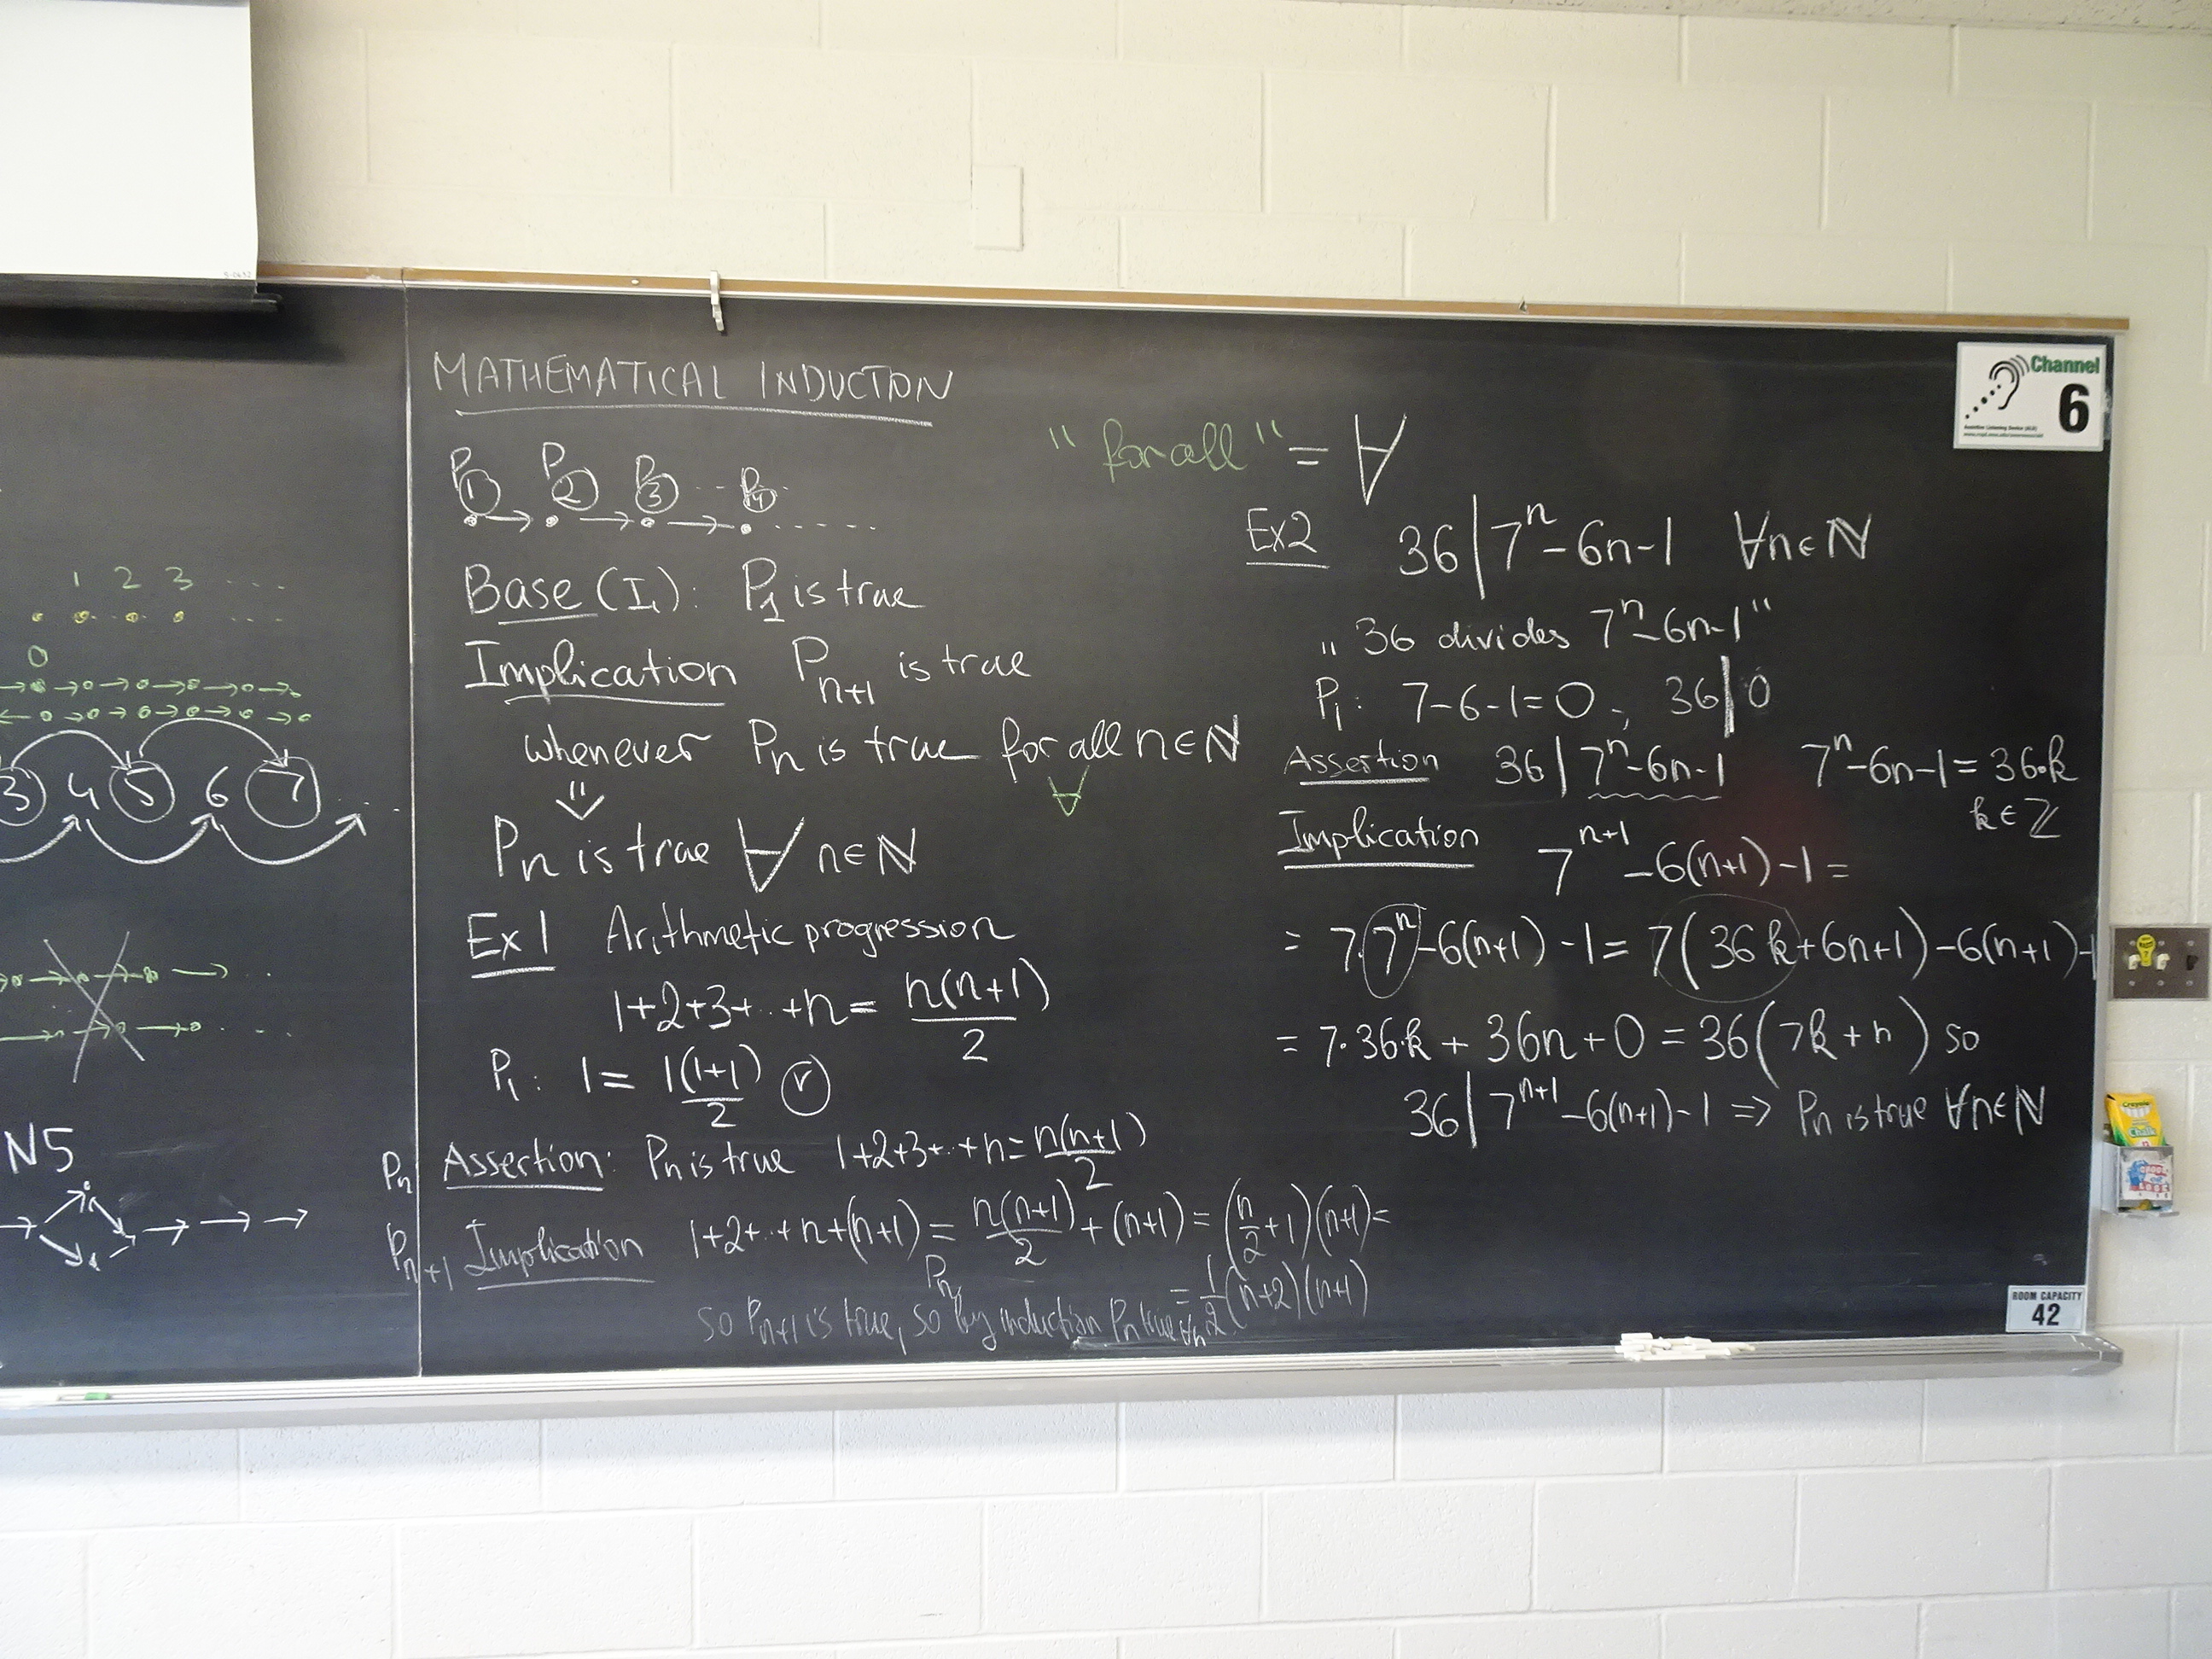 S-0632
1 2 3 ....
0
3 4 5 6 7 ...
N5
MATHEMATICAL INDUCTION
P1 P2 P3 ... P4 ...
Base (I1): P1 is true
Implication Pn+1 is true
whenever Pn is true for all n∈ℕ
∀
⇓
Pn is true ∀ n∈ℕ
Ex1 Arithmetic progression
1+2+3+...+n = n(n+1)/2
P1: 1 = 1(1+1)/2 ✓
Pn Assertion: Pn is true 1+2+3+...+n = n(n+1)/2
Pn+1 Implication 1+2+...+n+(n+1) = n(n+1)/2 + (n+1) = (n/2+1)(n+1) =
Pn = 1/2(n+2)(n+1)
so Pn+1 is true, so by induction Pn true ∀n
"for all" = ∀
Ex2 36|7^n-6n-1 ∀n∈ℕ
"36 divides 7^n-6n-1"
P1: 7-6-1=0, 36|0
Assertion 36|7^n-6n-1 7^n-6n-1=36·k
k∈ℤ
Implication 7^(n+1)-6(n+1)-1=
= 7·7^n-6(n+1)-1 = 7(36k+6n+1)-6(n+1)-1
= 7·36k+36n+0 = 36(7k+n) so
36|7^(n+1)-6(n+1)-1 ⇒ Pn is true ∀n∈ℕ
Channel
6
ROOM CAPACITY
42
Crayola
Chalk